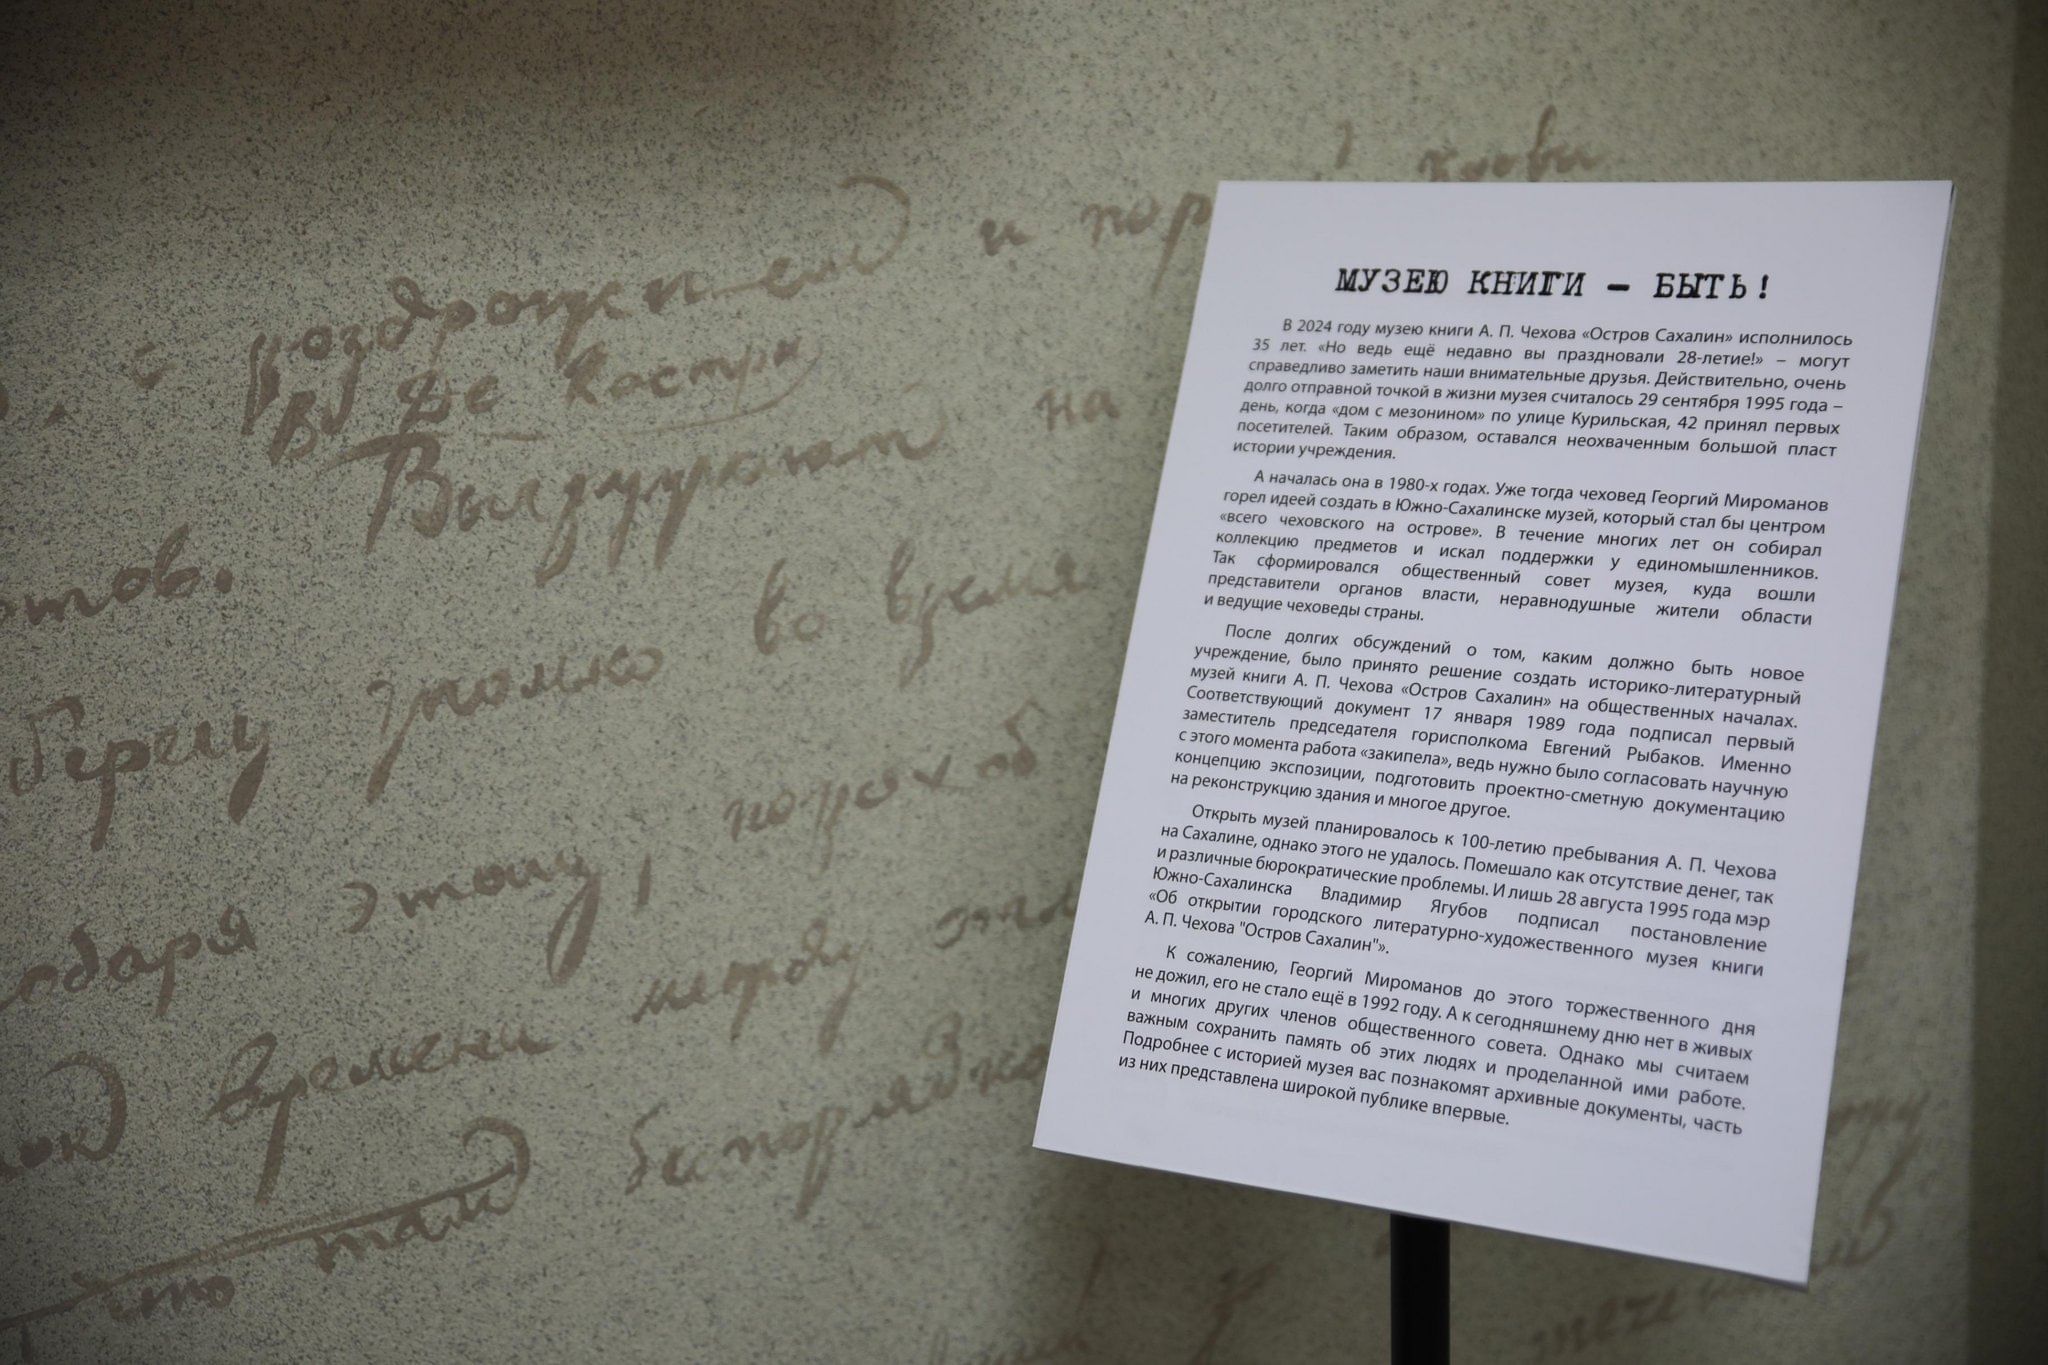 и
раздражением
В Де Кастри
Выгружают на
берегу только во время
этому, пороховъ
времени между
тамъ беспорядко
МУЗЕЮ КНИГИ – БЫТЬ!
В 2024 году музею книги А. П. Чехова «Остров Сахалин» исполнилось
35 лет. «Но ведь ещё недавно вы праздновали 28-летие!» – могут
справедливо заметить наши внимательные друзья. Действительно, очень
долго отправной точкой в жизни музея считалось 29 сентября 1995 года –
день, когда «дом с мезонином» по улице Курильская, 42 принял первых
посетителей. Таким образом, оставался неохваченным большой пласт
истории учреждения.
А началась она в 1980-х годах. Уже тогда чеховед Георгий Мироманов
горел идеей создать в Южно-Сахалинске музей, который стал бы центром
«всего чеховского на острове». В течение многих лет он собирал
коллекцию предметов и искал поддержки у единомышленников.
Так сформировался общественный совет музея, куда вошли
представители органов власти, неравнодушные жители области
и ведущие чеховеды страны.
После долгих обсуждений о том, каким должно быть новое
учреждение, было принято решение создать историко-литературный
музей книги А. П. Чехова «Остров Сахалин» на общественных началах.
Соответствующий документ 17 января 1989 года подписал первый
заместитель председателя горисполкома Евгений Рыбаков. Именно
с этого момента работа «закипела», ведь нужно было согласовать научную
концепцию экспозиции, подготовить проектно-сметную документацию
на реконструкцию здания и многое другое.
Открыть музей планировалось к 100-летию пребывания А. П. Чехова
на Сахалине, однако этого не удалось. Помешало как отсутствие денег, так
и различные бюрократические проблемы. И лишь 28 августа 1995 года мэр
Южно-Сахалинска Владимир Ягубов подписал постановление
«Об открытии городского литературно-художественного музея книги
А. П. Чехова "Остров Сахалин"».
К сожалению, Георгий Мироманов до этого торжественного дня
не дожил, его не стало ещё в 1992 году. А к сегодняшнему дню нет в живых
и многих других членов общественного совета. Однако мы считаем
важным сохранить память об этих людях и проделанной ими работе.
Подробнее с историей музея вас познакомят архивные документы, часть
из них представлена широкой публике впервые.